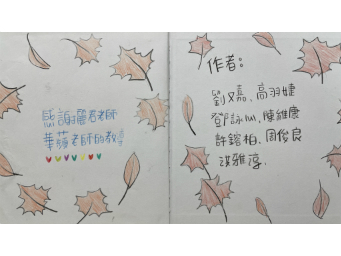 感謝麗君老師
華蘋老師的教
作者:
劉又嘉,高羽婕
鄧詠心,陳維康
許鎔柏,周俊良
淇雅淳,